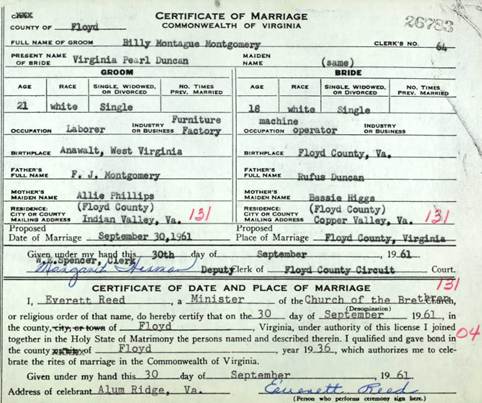 CERTIFICATE OF MARRIAGE
COMMONWEALTH OF VIRGINIA
26783
COUNTY OF Floyd
FULL NAME OF GROOM Billy Montague Montgomery CLERK'S NO. 64
PRESENT NAME OF BRIDE Virginia Pearl Duncan MAIDEN NAME (same)
GROOM BRIDE
AGE RACE SINGLE, WIDOWED OR DIVORCED NO. TIMES PREV. MARRIED AGE RACE SINGLE, WIDOWED OR DIVORCED NO. TIMES PREV. MARRIED
21 white Single 18 white Single
OCCUPATION Laborer INDUSTRY OR BUSINESS Furniture Factory OCCUPATION machine operator INDUSTRY OR BUSINESS
BIRTHPLACE Anawalt, West Virginia BIRTHPLACE Floyd County, Va.
FATHER'S FULL NAME F. J. Montgomery FATHER'S FULL NAME Rufus Duncan
MOTHER'S MAIDEN NAME Allie Phillips MOTHER'S MAIDEN NAME Bessie Higgs
RESIDENCE: CITY OR COUNTY MAILING ADDRESS (Floyd County) Indian Valley, Va. 131 RESIDENCE: CITY OR COUNTY MAILING ADDRESS (Floyd County) Copper Valley, Va. 131
Proposed Date of Marriage September 30,1961 Proposed Place of Marriage Floyd County, Virginia
Given under my hand this 30th day of September 1961
Spencer, Clerk
Margaret Deputy Clerk of Floyd County Circuit Court.
CERTIFICATE OF DATE AND PLACE OF MARRIAGE 131
I, Everett Reed, a Minister of the Church of the Brethren Church,
(Denomination)
or religious order of that name, do hereby certify that on the 30 day of September 1961, in
the county, city, or town of Floyd, Virginia, under authority of this license I joined
together in the Holy State of Matrimony the persons named and described therein. I qualified and gave bond in 04
the county of Floyd, year 1936, which authorizes me to cele-
brate the rites of marriage in the Commonwealth of Virginia.
Given under my hand this 30 day of September 1961
Address of celebrant Alum Ridge, Va. Everett Reed
(Person who performs ceremony sign here.)